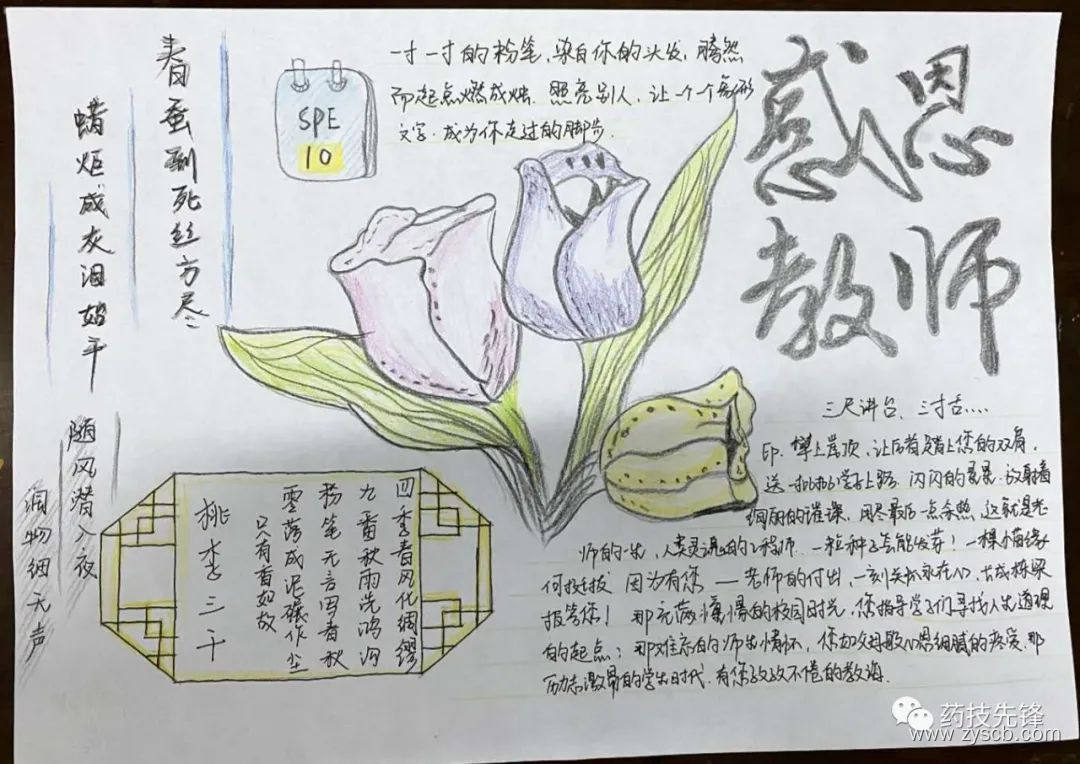 感恩
教师
一寸一寸的粉笔,染白你的头发,腾然
而起点燃成烛.照亮别人,让一个个象形
文字.成为你走过的脚步.
SPE
10
春蚕到死丝方尽
蜡炬成灰泪始干
随风潜入夜
润物细无声
四季春风化绸缪
九番秋雨洗鸿沟
粉笔无言写春秋
零落成泥碾作尘
只有香如故
桃李三千
三尺讲台、三寸舌....
印.攀上崖顶,让后者踏上您的双肩.
送一批批学子上路.闪闪的晨景.放射着
绚丽的璀璨.用尽最后一点余热.这就是老
师的一生,人类灵魂的工程师.一粒种子会能发芽!一棵小苗缘
何挺拔 因为有您——老师的付出,一刻关机永在心,古成栋梁
报答您!那充满憧憬的校园时光,您指导学子们寻找人生道理
的起点;那难忘的师生情怀,您如父母般心思细腻的疼爱.那
励志激昂的学生时代.有您孜孜不倦的教诲.
药技先锋
www.zyscb.com